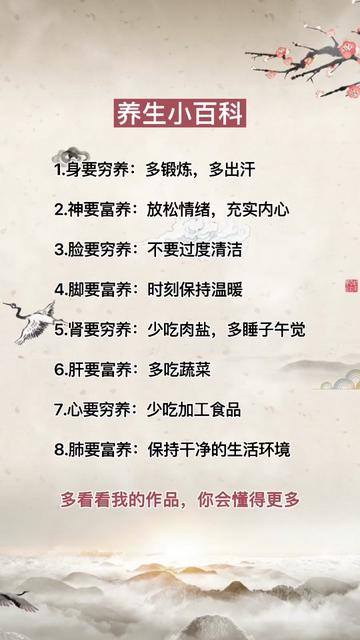 养生小百科
1.身要穷养：多锻炼，多出汗
2.神要富养：放松情绪，充实内心
3.脸要穷养：不要过度清洁
4.脚要富养：时刻保持温暖
5.肾要穷养：少吃肉盐，多睡子午觉
6.肝要富养：多吃蔬菜
7.心要穷养：少吃加工食品
8.肺要富养：保持干净的生活环境
多看看我的作品，你会懂得更多